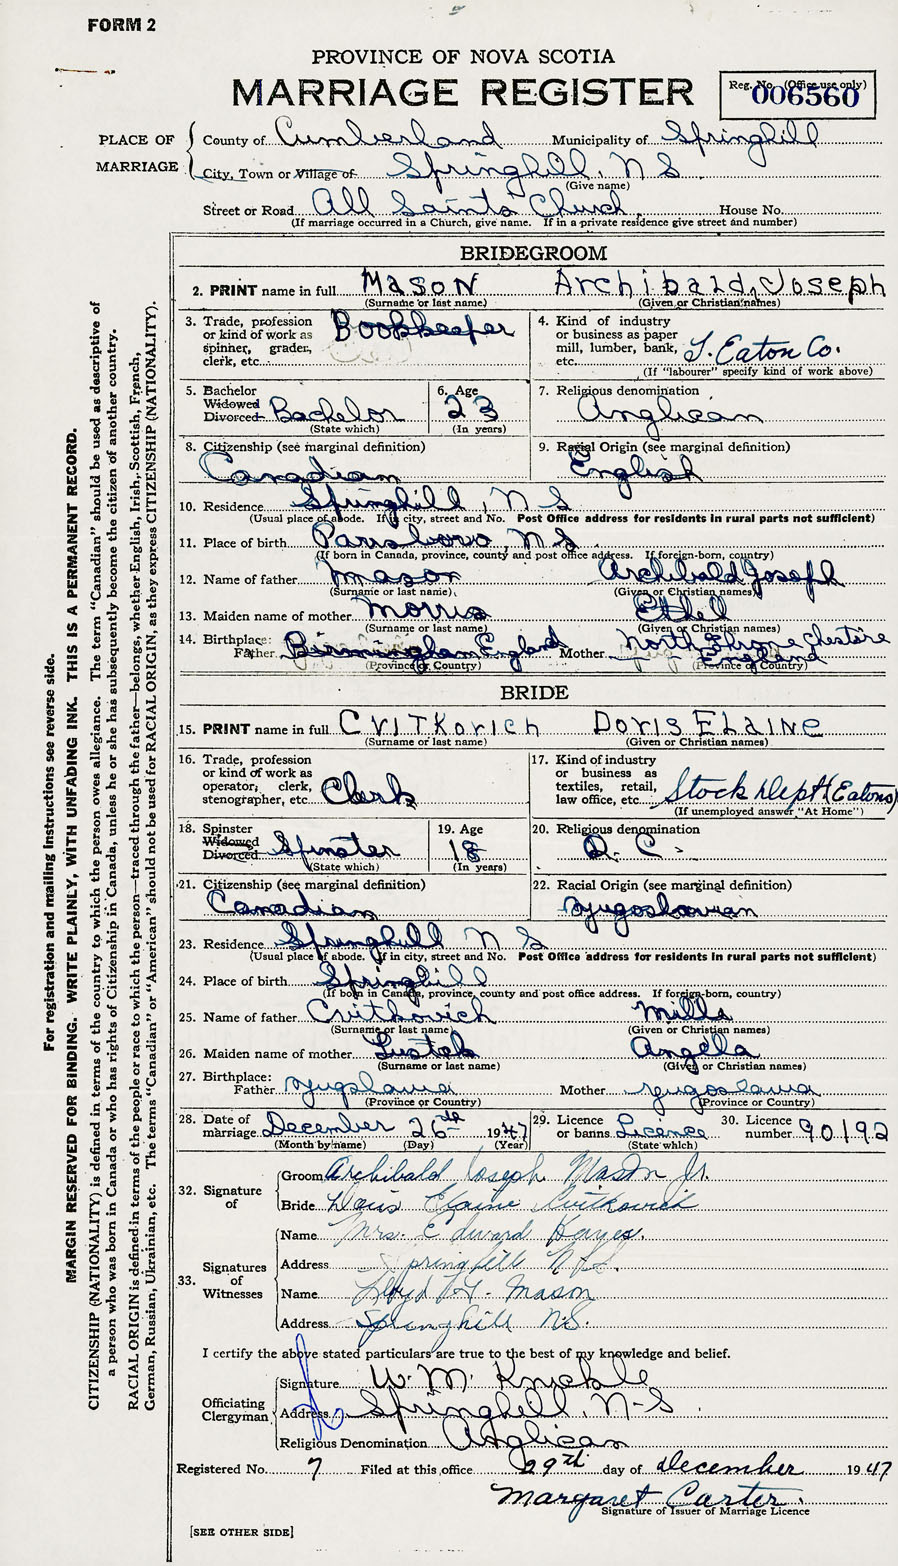 FORM 2
PROVINCE OF NOVA SCOTIA
MARRIAGE REGISTER
Reg. No. (Office use only)
006560
PLACE OF MARRIAGE
County of Cumberland Municipality of Springhill
City, Town or Village of Springhill, N S
(Give name)
Street or Road All Saints Church House No.
(If marriage occurred in a Church, give name. If in a private residence give street and number)
BRIDEGROOM
2. PRINT name in full Mason Archibald, Joseph
(Surname or last name) (Given or Christian names)
3. Trade, profession or kind of work as spinner, grader, clerk, etc. Bookkeeper
4. Kind of industry or business as paper mill, lumber, bank, etc. T. Eaton Co.
(If "labourer" specify kind of work above)
5. Bachelor Widowed Divorced Bachelor
(State which)
6. Age 23
(In years)
7. Religious denomination
Anglican
8. Citizenship (see marginal definition)
Canadian
9. Racial Origin (see marginal definition)
English
10. Residence Springhill, N S
(Usual place of abode. If in city, street and No. Post Office address for residents in rural parts not sufficient)
11. Place of birth Parrsboro, N S
(If born in Canada, province, county and post office address. If foreign-born, country)
12. Name of father Mason Archibald Joseph
(Surname or last name) (Given or Christian names)
13. Maiden name of mother Morris Ethel
(Surname or last name) (Given or Christian names)
14. Birthplace:
Father Birmingham England Mother England
(Province or Country) (Province or Country)
BRIDE
15. PRINT name in full Cvitkovich Doris Elaine
(Surname or last name) (Given or Christian names)
16. Trade, profession or kind of work as operator, clerk, stenographer, etc Clerk
17. Kind of industry or business as textiles, retail, law office, etc. Stock Dept (Eatons)
(If unemployed answer "At Home")
18. Spinster Widowed Divorced Spinster
(State which)
19. Age 18
(In years)
20. Religious denomination
R. C.
21. Citizenship (see marginal definition)
Canadian
22. Racial Origin (see marginal definition)
Yugoslavian
23. Residence Springhill N S
(Usual place of abode. If in city, street and No. Post Office address for residents in rural parts not sufficient)
24. Place of birth Springhill
(If born in Canada, province, county and post office address. If foreign-born, country)
25. Name of father Cvitkovich Mills
(Surname or last name) (Given or Christian names)
26. Maiden name of mother Lustek Angela
(Surname or last name) (Given or Christian names)
27. Birthplace:
Father Yugslavia Mother Yugoslavia
(Province or Country) (Province or Country)
28. Date of marriage December 26th 1947
(Month by name) (Day) (Year)
29. Licence or banns Licence
(State which)
30. Licence number 90192
32. Signature of
Groom Archibald Joseph Mason Jr.
Bride Doris Elaine Cvitkovich
33. Signatures of Witnesses
Name Mrs. Edward Hayes.
Address Springhill N.S.
Name Lloyd Mason
Address Springhill N.S.
I certify the above stated particulars are true to the best of my knowledge and belief.
Officiating Clergyman
Signature W. M. Knickle
Address Springhill, N-S.
Religious Denomination Anglican
Registered No. 7 Filed at this office 29th day of December 1947
Margaret Carter.
Signature of Issuer of Marriage Licence
[SEE OTHER SIDE]
For registration and mailing instructions see reverse side.
MARGIN RESERVED FOR BINDING. WRITE PLAINLY, WITH UNFADING INK. THIS IS A PERMANENT RECORD.
CITIZENSHIP (NATIONALITY) is defined in terms of the country to which the person owes allegiance. The term "Canadian" should be used as descriptive of
a person who was born in Canada or who has rights of Citizenship in Canada, unless he or she has subsequently become the citizen of another country.
RACIAL ORIGIN is defined in terms of the people or race to which the person—traced through the father—belongs, whether English, Irish, Scottish, French,
German, Russian, Ukrainian, etc. The terms "Canadian" or "American" should not be used for RACIAL ORIGIN, as they express CITIZENSHIP (NATIONALITY).